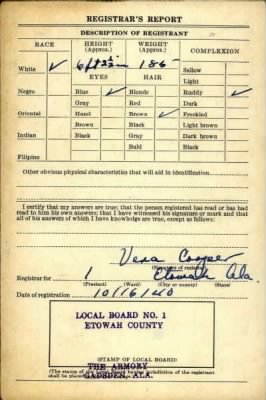 REGISTRAR'S REPORT
DESCRIPTION OF REGISTRANT
RACE HEIGHT (Approx.) WEIGHT (Approx.) COMPLEXION
White ✓ 6 ft 2½ in 185 Sallow
EYES HAIR Light
Negro Blue ✓ Blonde Ruddy ✓
Gray Red Dark
Oriental Hazel Brown ✓ Freckled
Brown Black Light brown
Indian Black Gray Dark brown
Bald Black
Filipino
Other obvious physical characteristics that will aid in identification
I certify that my answers are true; that the person registered has read or has had
read to him his own answers; that I have witnessed his signature or mark and that
all of his answers of which I have knowledge are true, except as follows:
Vera Cooper
(Signature of registrar)
Registrar for 1 Etowah Ala.
(Precinct) (Ward) (City or county) (State)
Date of registration 10/16/40
LOCAL BOARD NO. 1
ETOWAH COUNTY
(STAMP OF LOCAL BOARD)
THE ARMORY
(The stamp of the jurisdiction of the registrar
shall be placed
GADSDEN, ALA.